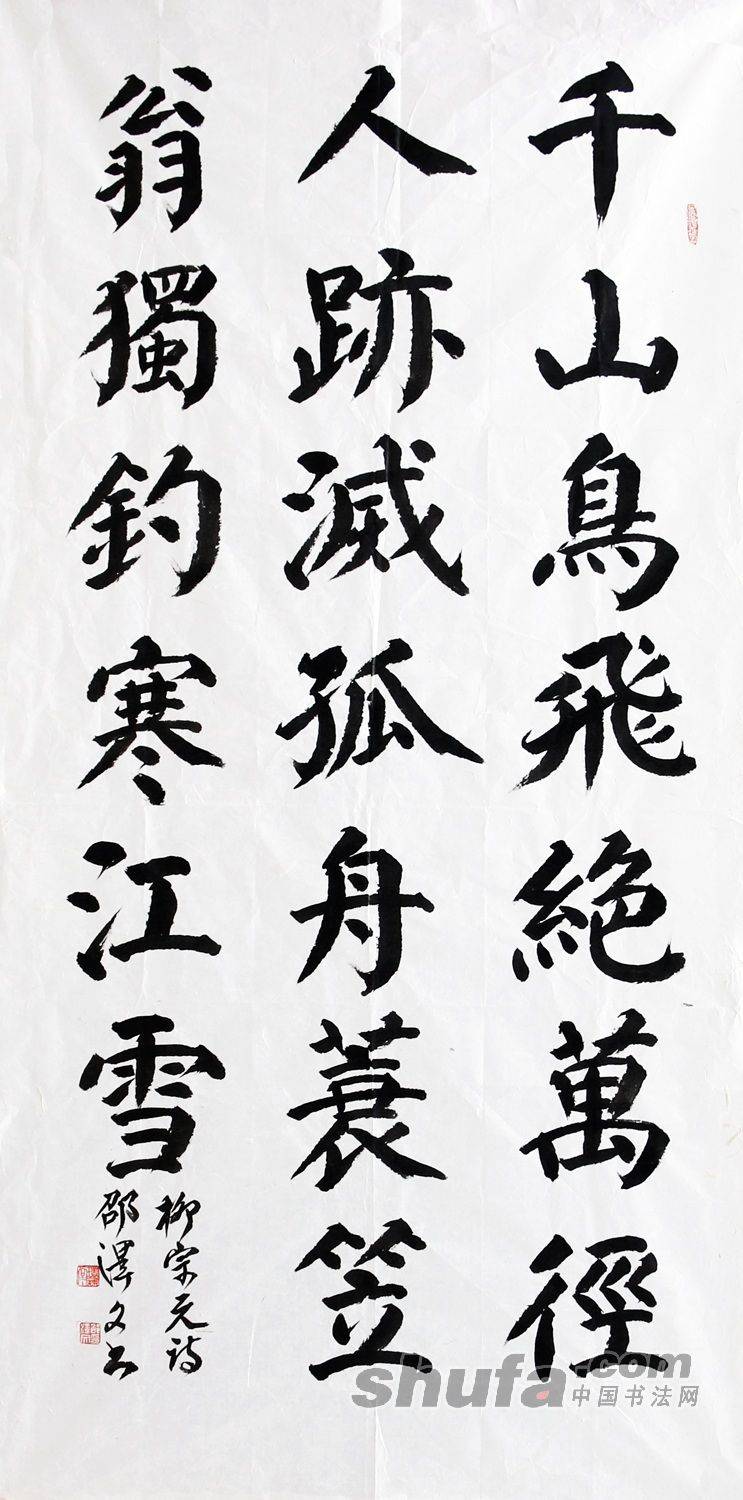 千山鳥飛絶萬徑
人跡滅孤舟蓑笠
翁獨釣寒江雪
柳宗元詩
邵澤文书
shufa.com
中国书法网